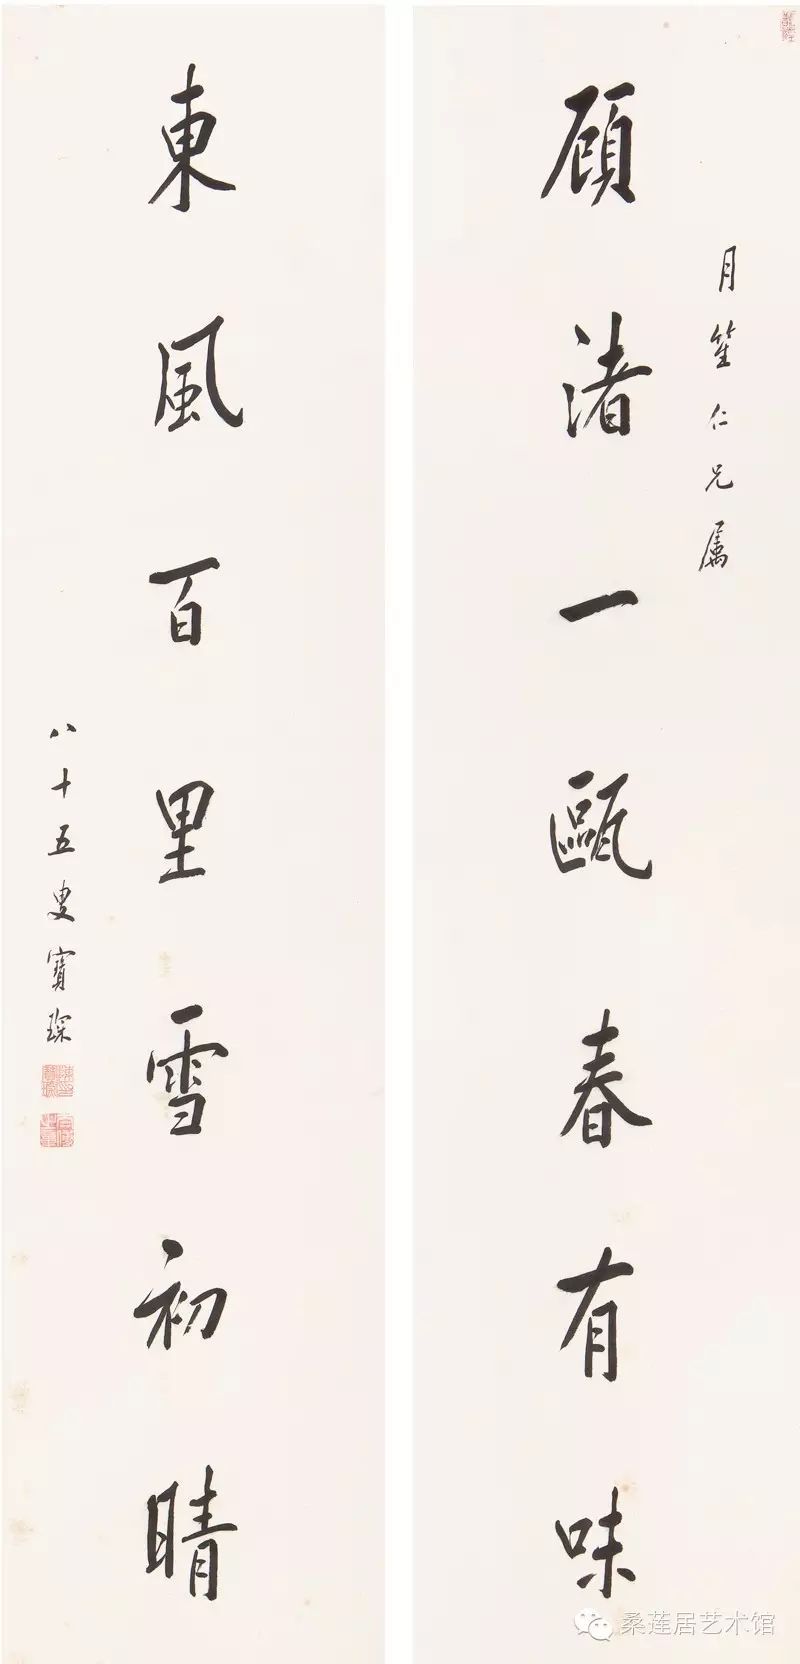 月笙仁兄属
顾渚一甌春有味
東風百里雪初晴
八十五叟寶琛
桑莲居艺术馆